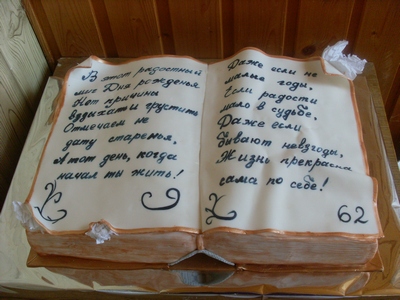 В этот радостный
миг Дня рожденья
Нет причины
вздыхать и грустить
Отмечаем не
дату старенья,
А тот день, когда
начал ты жить!
Даже если не
малые годы,
Если радости
мало в судьбе,
Даже если
бывают невзгоды,
Жизнь прекрасна
сама по себе!
62